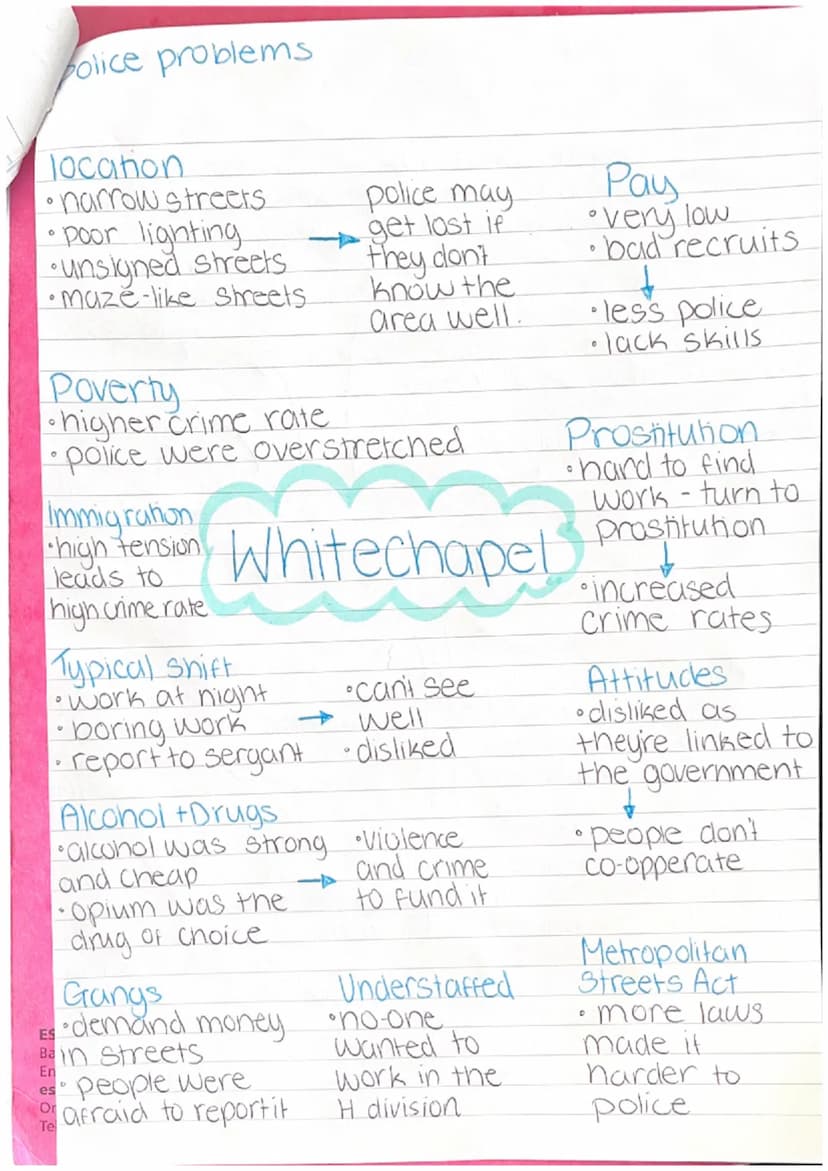 Police problems
location
• narrow streets
• poor lighting
• unsigned streets
• maze-like streets
→ police may
get lost if
they don't
know the
area well.
Pay
• very low
• bad recruits
↓
• less police
• lack skills
Poverty
• higher crime rate
• police were overstretched
Prostitution
• hard to find
work - turn to
prostitution
↓
• increased
crime rates
Immigration
• high tension
leads to
high crime rate
Whitechapel
Typical shift
• work at night
• boring work
• report to sergant
→
• can't see
well
• disliked
Attitudes
• disliked as
they're linked to
the government
↓
• people don't
co-opperate
Alcohol + Drugs
• alcohol was strong
and cheap
• opium was the
drug of choice
→
• violence
and crime
to fund it
Gangs
• demand money
in streets
• people were
afraid to report it
Understaffed
• no-one
wanted to
work in the
H division
Metropolitan
Streets Act
• more laws
made it
harder to
police
ES
Ba
En
es
Or
Te